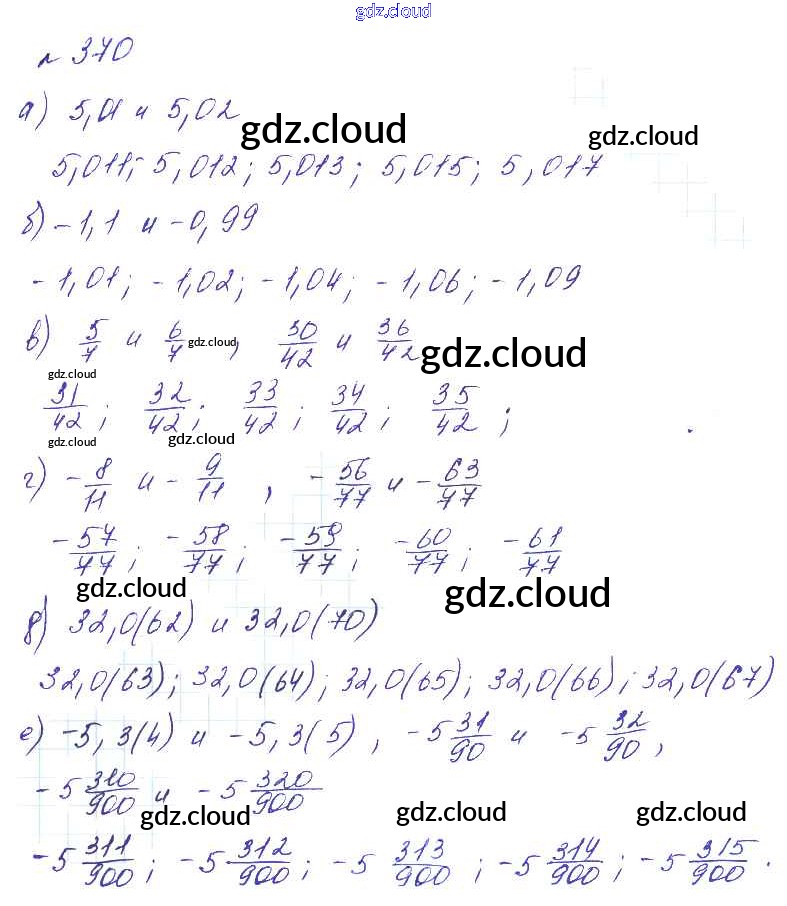 gdz.cloud
№ 370
а) 5,01 и 5,02
gdz.cloud gdz.cloud
5,011; 5,012; 5,013; 5,015; 5,017
б) -1,1 и -0,99
-1,01; -1,02; -1,04; -1,06; -1,09
в) 5/7 и 6/7 gdz.cloud, 30/42 и 36/42 gdz.cloud
gdz.cloud
31/42; 32/42; 33/42; 34/42; 35/42;
gdz.cloud gdz.cloud
г) -8/11 и -9/11, -56/77 и -63/77
-57/77; -58/77; -59/77; -60/77; -61/77
gdz.cloud gdz.cloud
д) 32,0(62) и 32,0(70)
32,0(63); 32,0(64); 32,0(65); 32,0(66); 32,0(67)
е) -5,3(4) и -5,3(5), -5 31/90 и -5 32/90,
-5 310/900 и -5 320/900
gdz.cloud gdz.cloud gdz.cloud
-5 311/900; -5 312/900; -5 313/900; -5 314/900; -5 315/900.